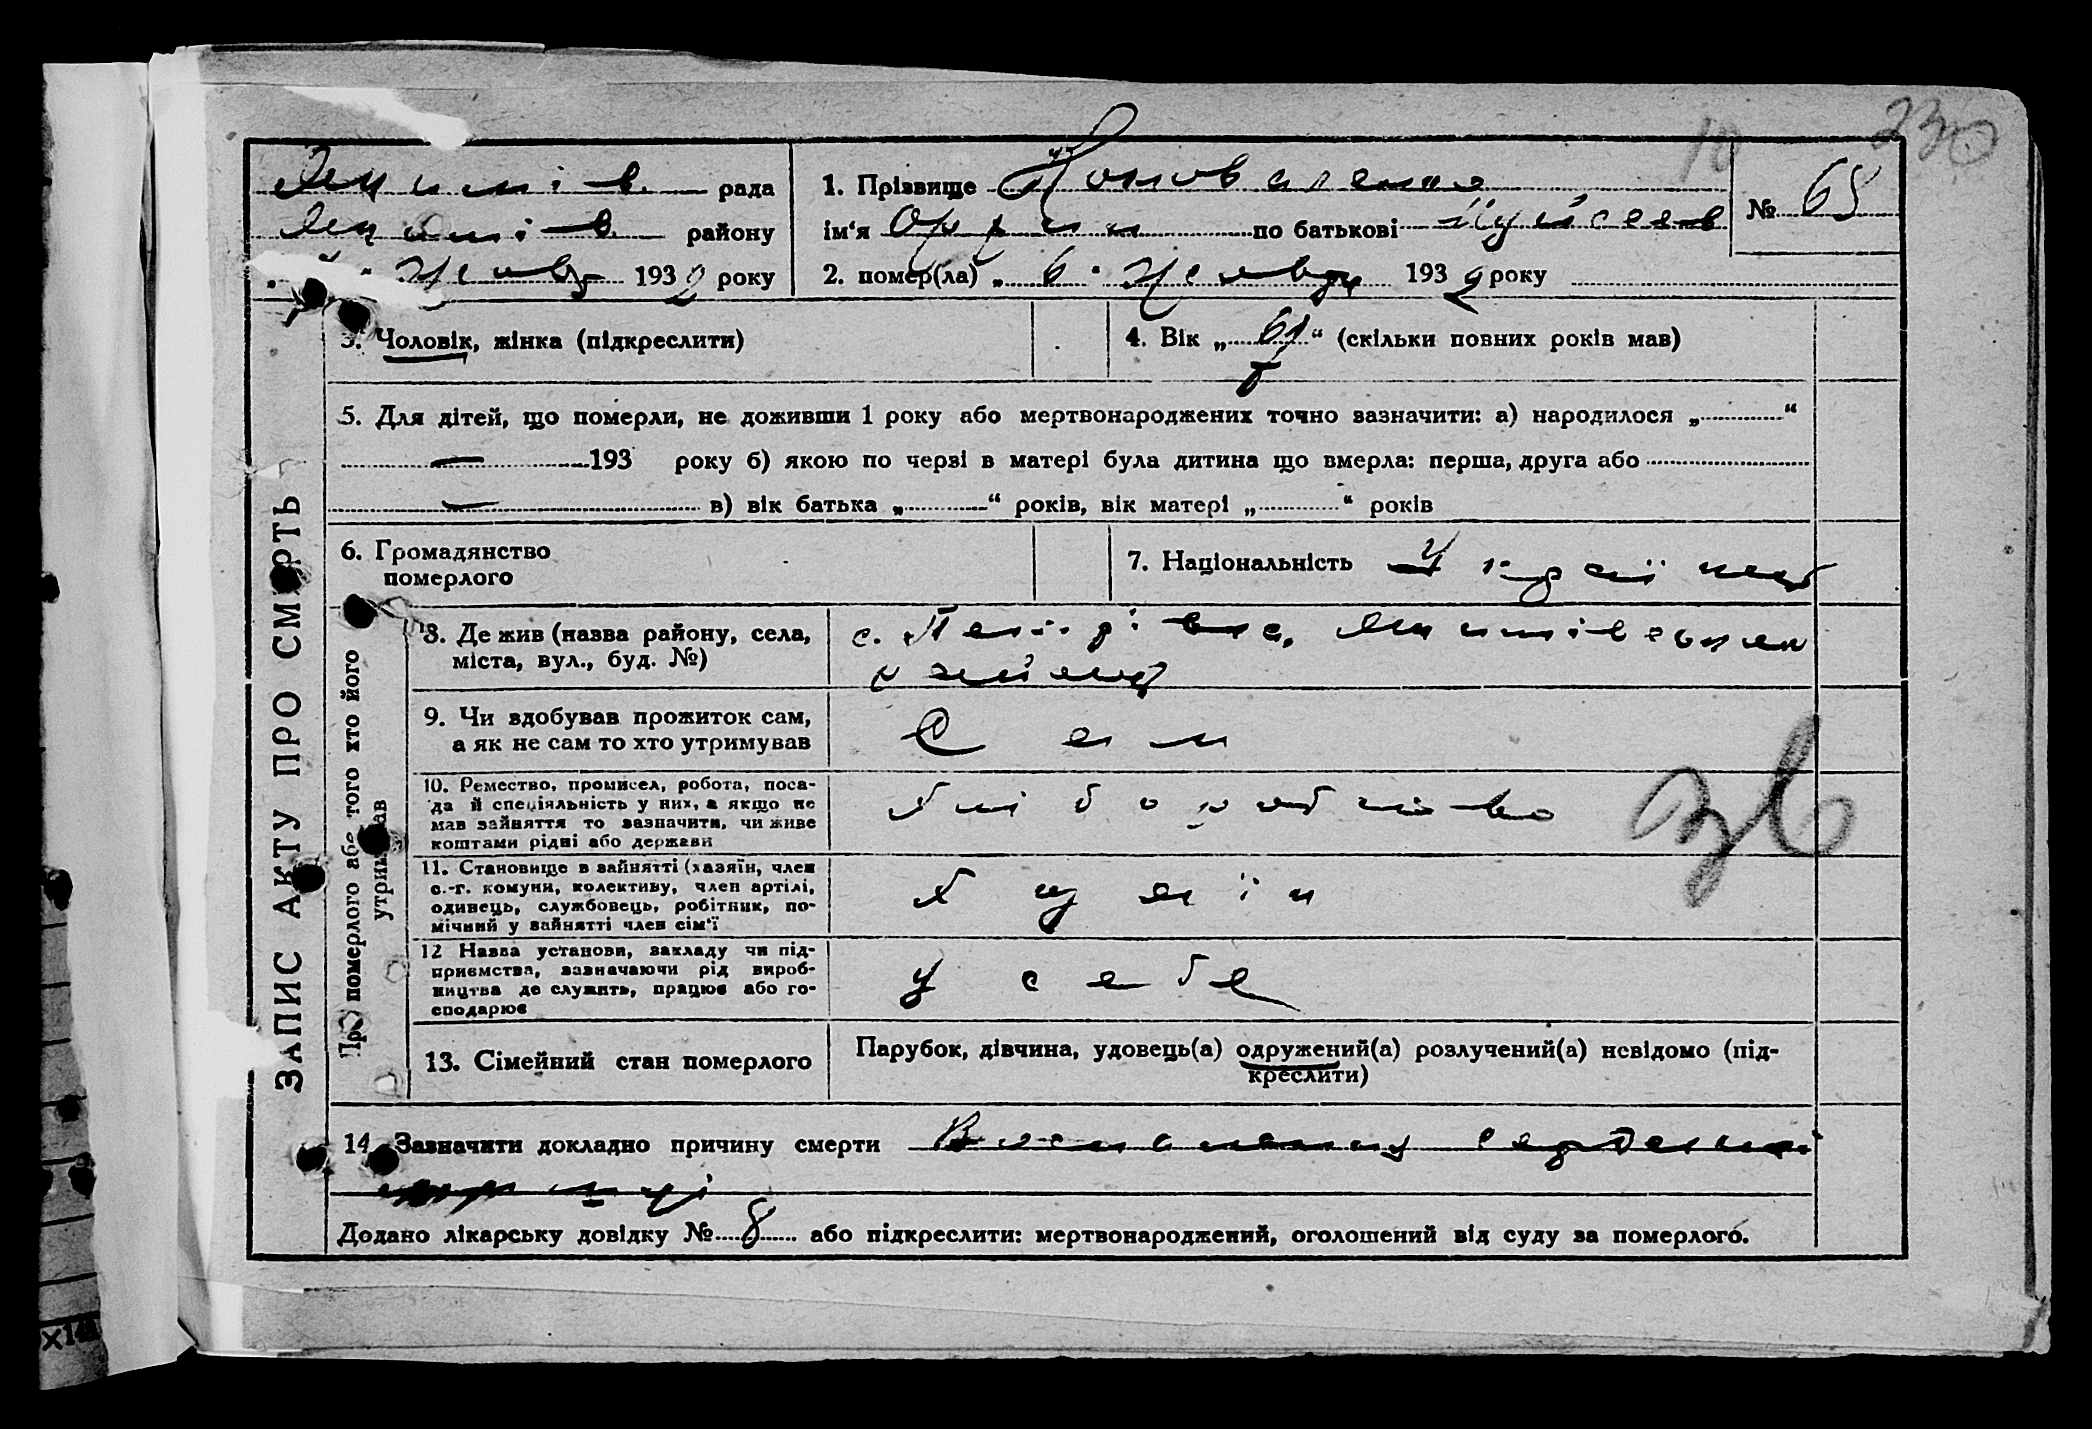 10 230
рада
району
193 2 року
1. Прізвище Коноваленко
№ 65
ім‘я по батькові
2. помер(ла) „ 6 " Жовтн 193 2 року
ЗАПИС АКТУ ПРО СМЕРТЬ
3. Чоловік, жінка (підкреслити)
4. Вік „ 61 “ (скільки повних років мав)
5. Для дітей, що померли, не доживши 1 року або мертвонароджених точно зазначити: а) народилося „ “
— 193 року б) якою по черзі в матері була дитина що вмерла: перша, друга або
— в) вік батька „ “ років, вік матері „ “ років
6. Громадянство
померлого
7. Національність Українец
Про померлого або того хто його
утримував
8. Де жив (назва району, села,
міста, вул., буд. №)
с. Петрівка,
району
9. Чи вдобував прожиток сам,
а як не сам то хто утримував
Сам
10. Ремество, промисел, робота, поса-
да й спеціяльність у них, а якщо не
мав зайняття то зазначити, чи живе
коштами рідні або держави
Хліборобство
11. Становище в зайнятті (хазяїн, член
с.-г. комуни, колективу, член артілі,
одинець, службовець, робітник, по-
мічний у зайнятті член сім‘ї
Хазяїн
12 Назва установи, закладу чи під-
приємства, зазначаючи рід вироб-
ництва де служить, працює або го-
сподарює
у себе
13. Сімейний стан померлого
Парубок, дівчина, удовець(а) одружений(а) розлучений(а) невідомо (під-
креслити)
14. Зазначити докладно причину смерти
Додано лікарську довідку № 8 або підкреслити: мертвонароджений, оголошений від суду за померлого.